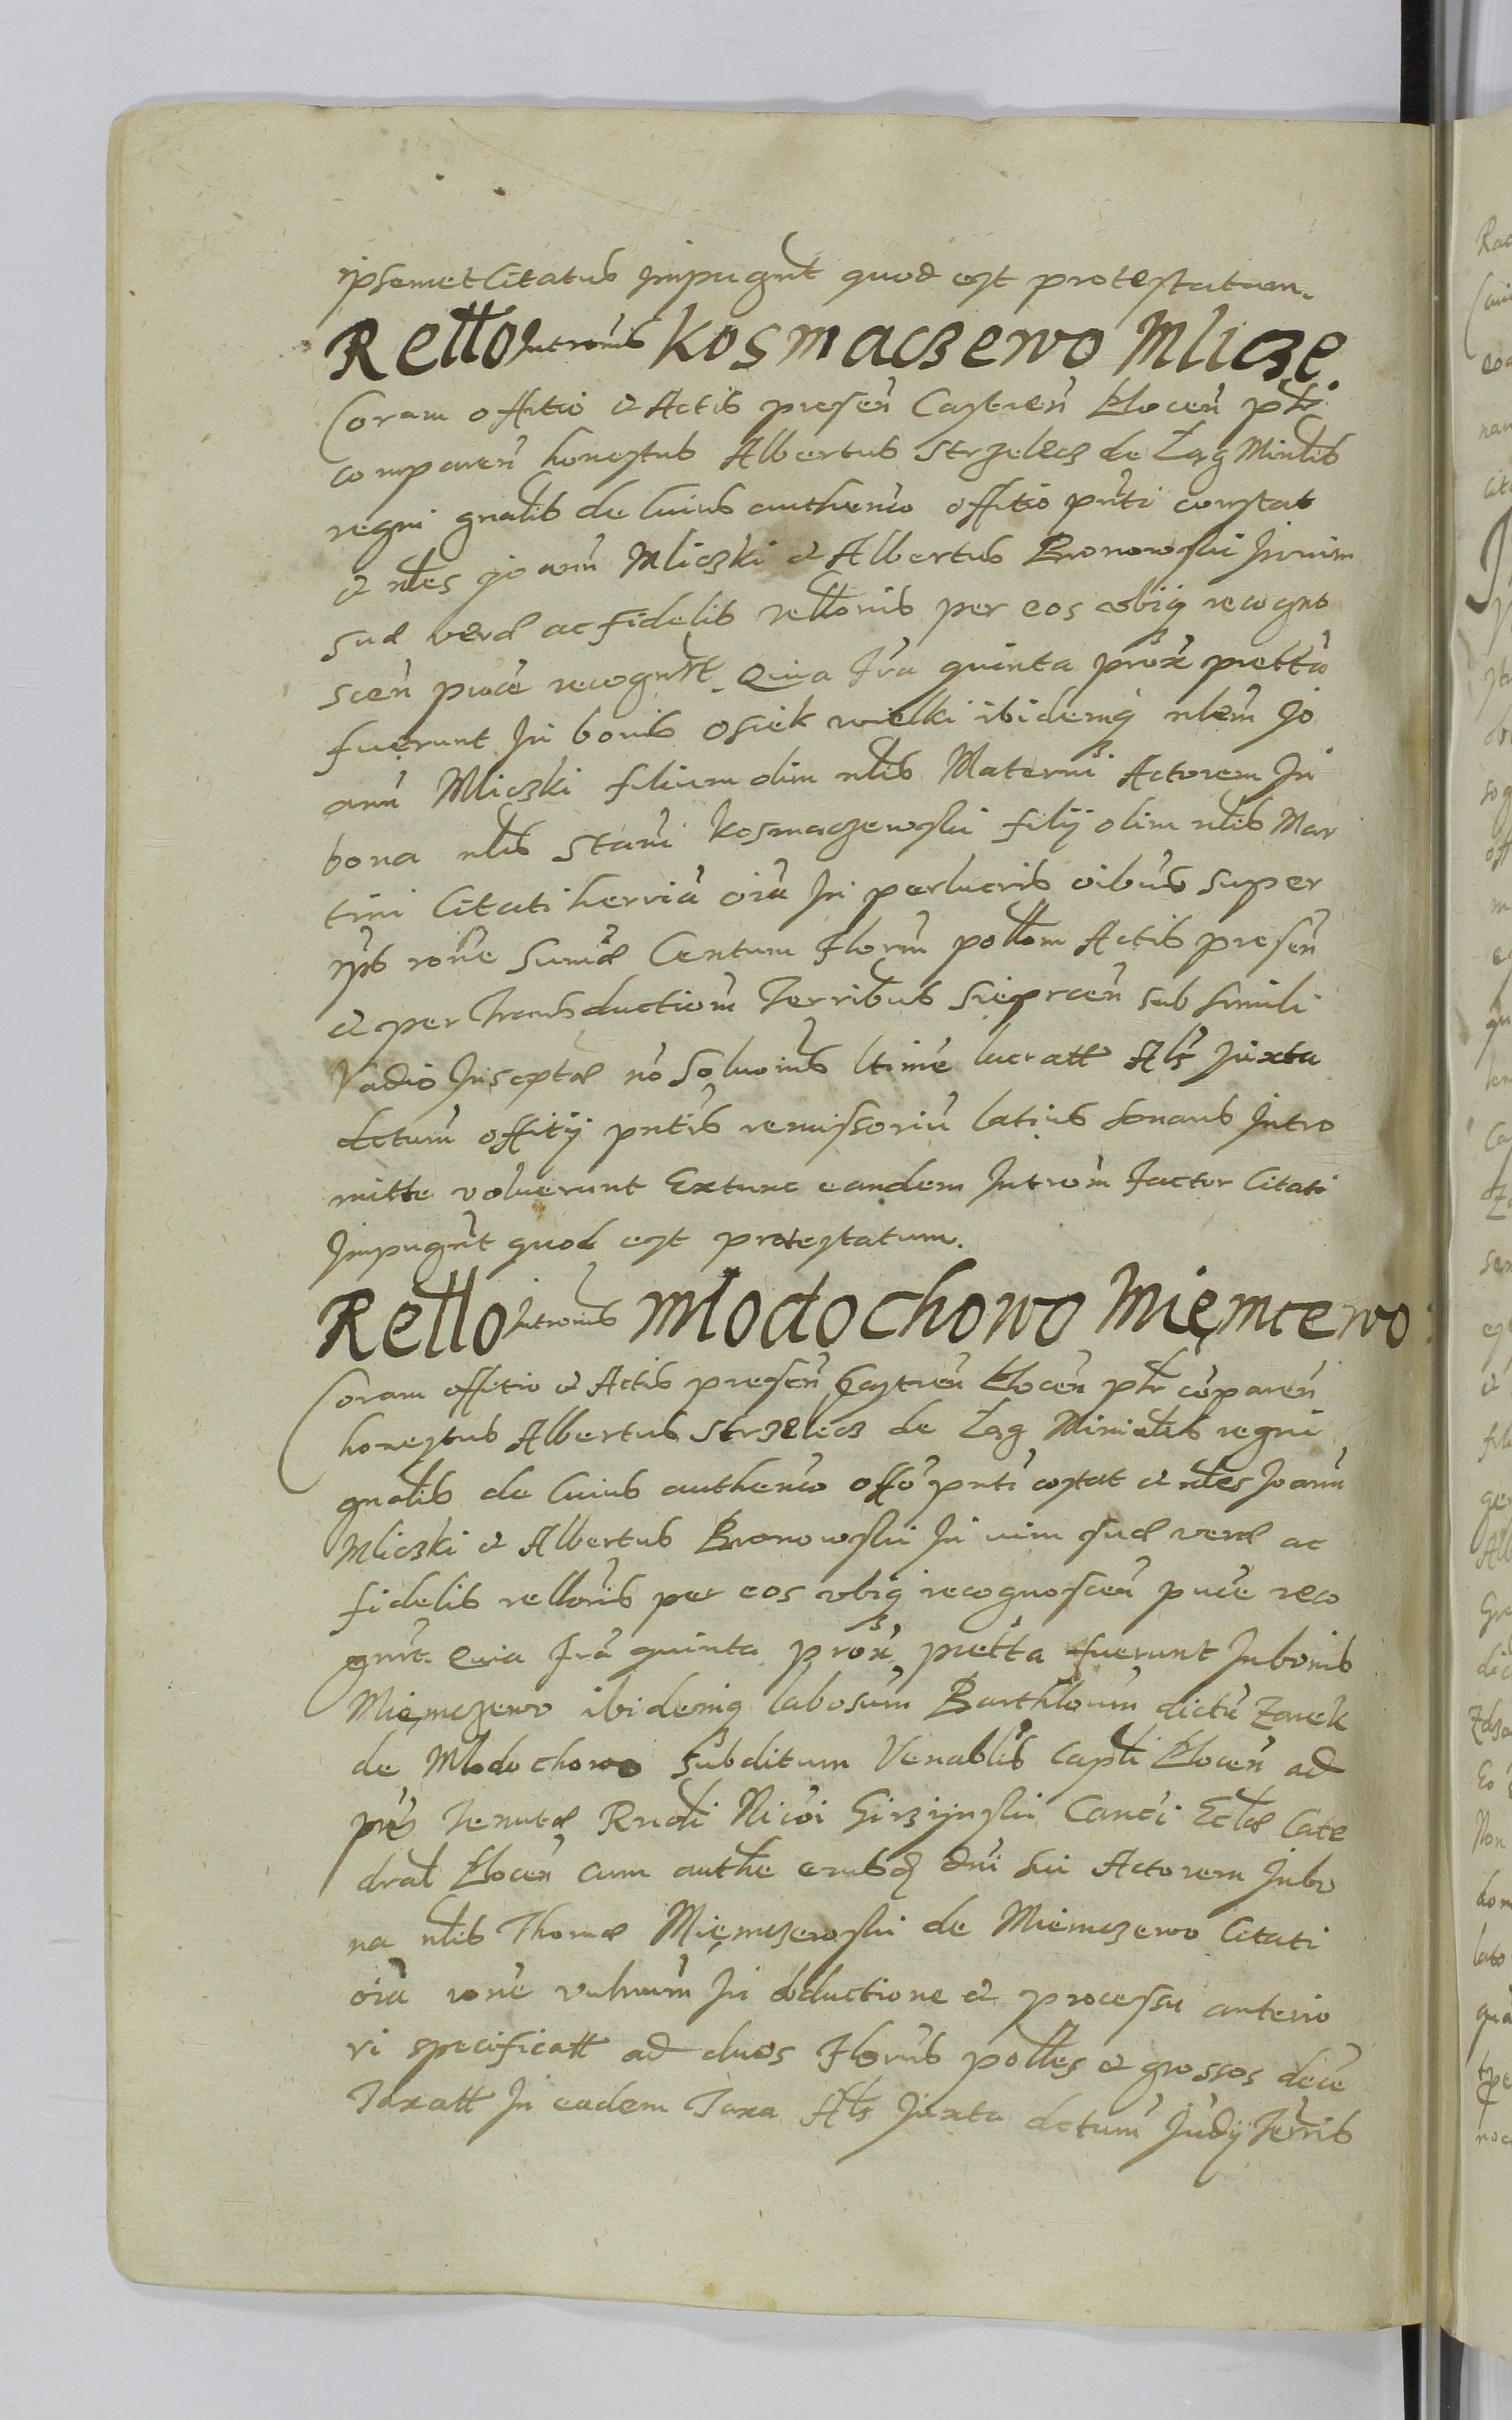 ipsemet Citatus Impugnt quod est protestatum.
Rello Intronis Kosmaczewo Mlicze
Coram offitio et Actis presen Castren Plocen pltr
comparen honestus Albertus Strzelecz de Łąg Mintlis
regni gnalis de cuius authenco offitio pnti constat
et nles Joann Mliczki et Albertus Bronowski In vim
suæ veræ ac fidelis rellonis per eos vbiq recogno
scen puce recognrt. Quia fra quinta prox pretta
fuerunt In bonis Osiek wielki ibidemq nlem Jo
ann Mliczki filium olim nlis Materni Actorem In
bona nlis Stani Kosmaczewski filij olim nlis Mar
tini Citati herria oia In perlucris oibus super
ijs rone Sumæ Centum Florm pollom Actis presen
et per Transductiom Terribus Sieprcen sub simili
Vadio Inscptæ no soluonis ltime lucratt Als Juxta
dctum offitij pntis remissoriu latius sonans Intro
mitte voluerunt Extunc eandem Introm factor Citati
Impugnt quod est protestatum.
Rello Intronis Młodochowo Miemcewo
Coram offitio et Actis presen Castren Plocen pltr coparen
honestus Albertus Strzelecz de Łąg Minialis regni
gnalis de cuius authenco offo pnti costat et nles Joann
Mliczki et Albertus Bronowski In vim suæ veræ ac
fidelis rellonis per eos vbiq recognoscen puce reco
gnrt. Quia fra quinta prox pretta fuerunt In bonis
Mięmczewo ibidemq labosum Barthloum dictu Zarek
de Mlodochowo subditum Venablis Capli Plocen ad
pns Tenutæ Rndi Nicoi Girzijnski Canci Eclæ Cate
dral Plocen cum authe eiusd dni sui Actorem In bo
na nlis Thomæ Mięmczewski de Miemczewo Citati
oia rone vulnum In dductione et processu anterio
ri specificatt ad duos Florus polles et grossos dece
Taxatt In eadem Taxa Als Juxta dctum Judij Terris